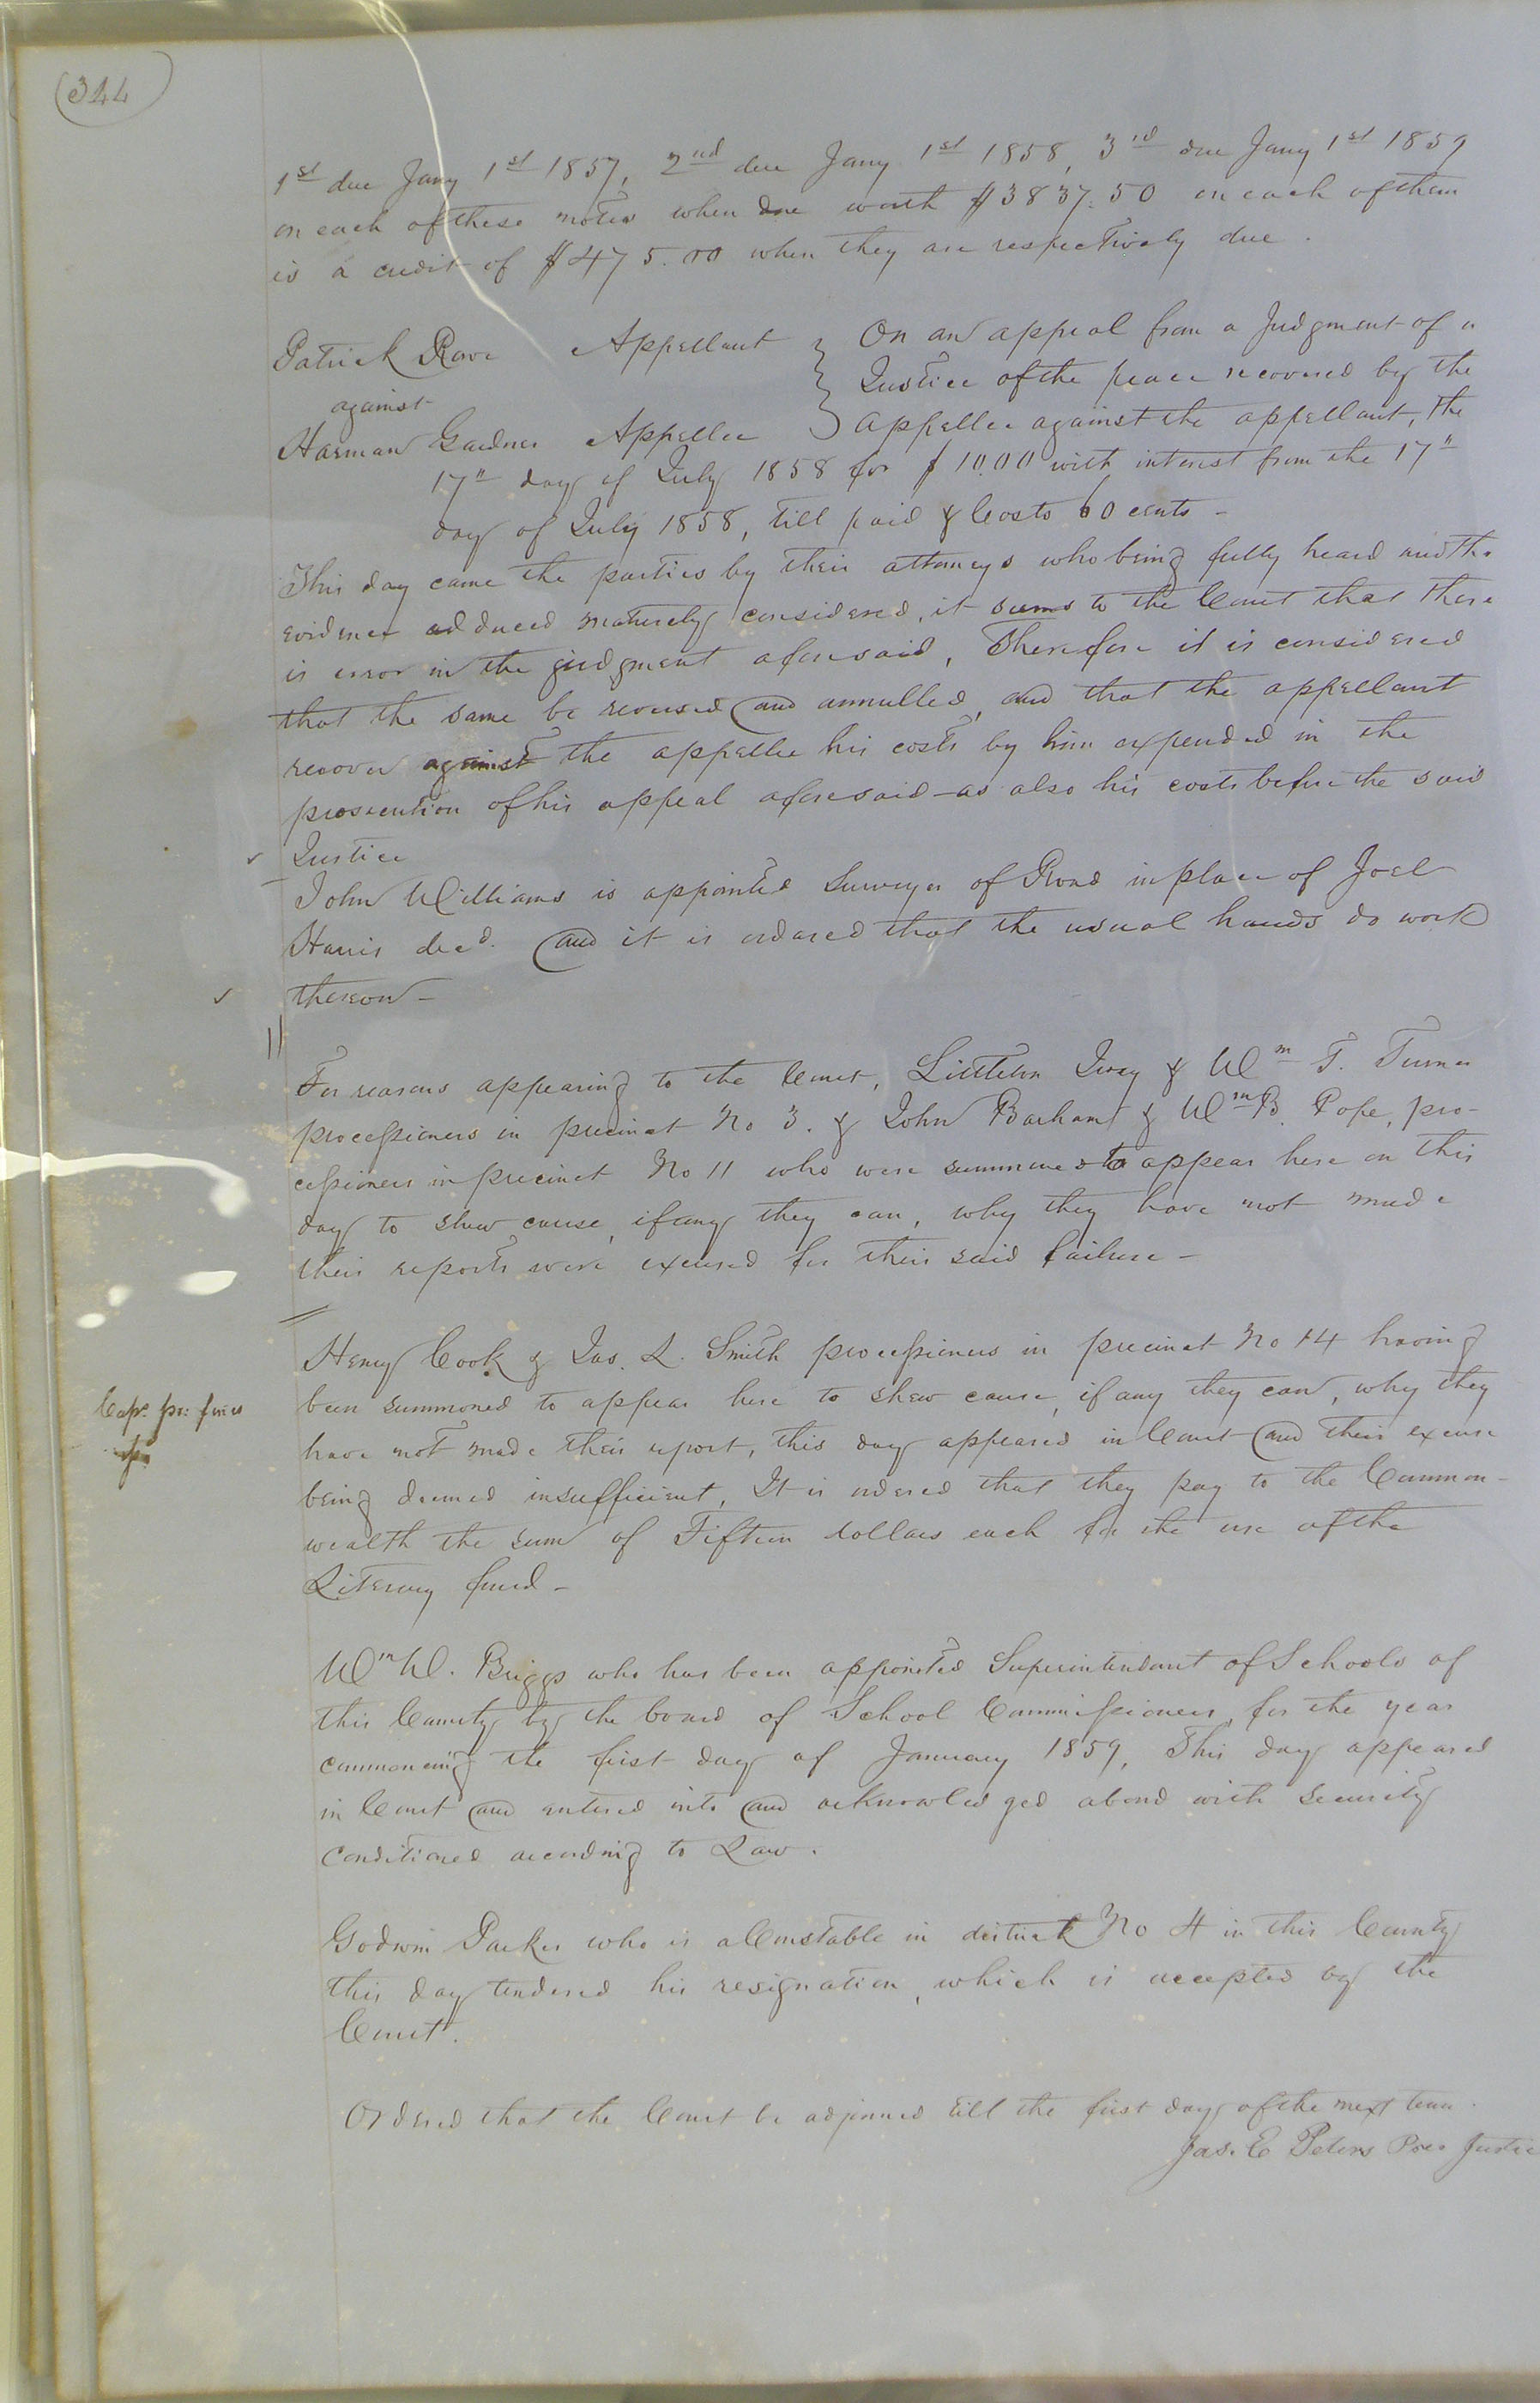 344
1st due Jany 1st 1857, 2nd due Jany 1st 1858, 3rd due Jany 1st 1859
on each of these notes when due worth $3837.50 on each of them
is a credit of $475.00 when they are respectively due.
Patrick Appellant } On an appeal from a Judgment of a
against } Justice of the peace recovered by the
Harman Gardner Appellee } appellee against the appellant, the
17" day of July 1858 for $10.00 with interest from the 17"
day of July 1858, till paid & Costs 60 cents -
This day came the parties by their attorneys who being fully heard and the
evidence adduced maturely considered, it seems to the Court that there
is error in the judgment aforesaid, Therefore it is considered
that the same be reversed and annulled, and that the appellant
recover against the appellee his costs by him expended in the
prosecution of his appeal aforesaid - as also his costs before the said
Justice
John Williams is appointed Surveyor of Road in place of Joel
Harris decd. and it is ordered that the usual hands do work
thereon -
For reasons appearing to the Court, Littleton Ivey & Wm T. Turner
processioners in precinct No 3. & John Barham & Wm B. Pope, pro-
cessioners in precinct No 11 who were summoned to appear here on this
day to shew cause, if any they can, why they have not made
their reports were excused for their said failure -
Henry Cook & Jas. L. Smith processioners in precinct No 14 having
been summoned to appear here to shew cause, if any they can, why they
Cap. pr: fines
have not made their report, this day appeared in Court and their excuse
being deemed insufficient, It is ordered that they pay to the Common-
wealth the sum of Fifteen dollars each for the use of the
Literary fund -
Wm W. Briggs who has been appointed Superintendant of Schools of
this County by the board of School Commissioners, for the year
commencing the first day of January 1859, This day appeared
in Court and entered into and acknowledged a bond with security
conditioned according to Law.
Godwin Parker who is a Constable in district No 4 in this County
this day tendered his resignation, which is accepted by the
Court.
Ordered that the Court be adjourned till the first day of the next term.
Jas. E Peters Pres. Justice